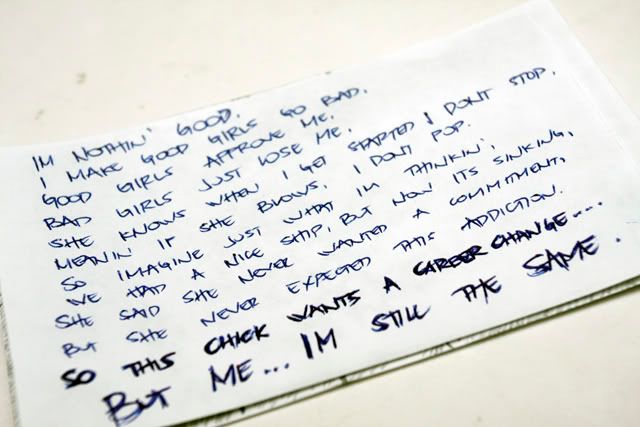 IM NOTHIN' GOOD.
I MAKE GOOD GIRLS GO BAD.
GOOD GIRLS APPROVE ME.
BAD GIRLS JUST LOSE ME.
SHE KNOWS WHEN I GET STARTED I DONT STOP.
MEANIN IF SHE BLOWS, I DONT POP.
SO IMAGINE JUST WHAT IM THINKIN',
WE HAD A NICE SHIP, BUT NOW ITS SINKING,
SHE SAID SHE NEVER WANTED A COMMITMENT,
BUT SHE NEVER EXPECTED THIS ADDICTION.
SO THIS CHICK WANTS A CAREER CHANGE....
BUT ME... IM STILL THE SAME.